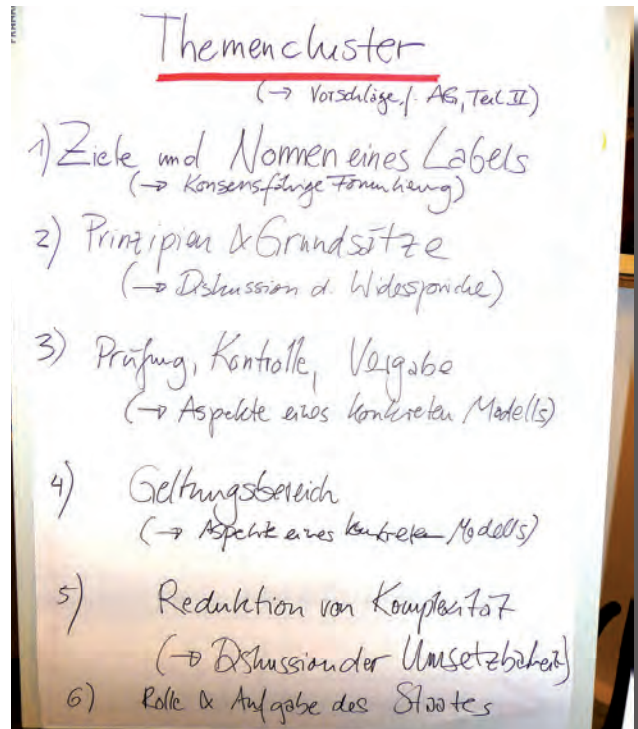 Themencluster
(→ Vorschläge f. AG, Teil II)
1) Ziele und Normen eines Labels
(→ Konsensfähige Formulierung)
2) Prinzipien & Grundsätze
(→ Diskussion d. Widersprüche)
3) Prüfung, Kontrolle, Vergabe
(→ Aspekte eines konkreten Modells)
4) Geltungsbereich
(→ Aspekte eines konkreten Modells)
5) Reduktion von Komplexität
(→ Diskussion der Umsetzbarkeit)
6) Rolle & Aufgabe des Staates